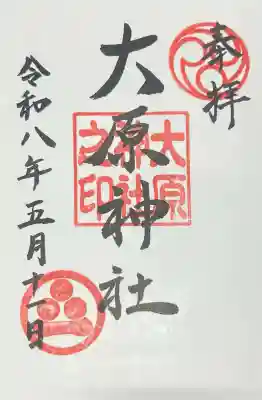 奉拝
大原神社
大原
神社
之印
令和八年五月十一日